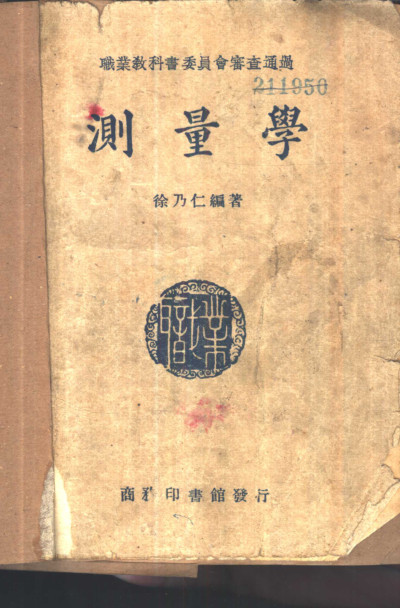 職業教科書委員會審查通過
211950
測量學
徐乃仁編著
職業
商務印書館發行